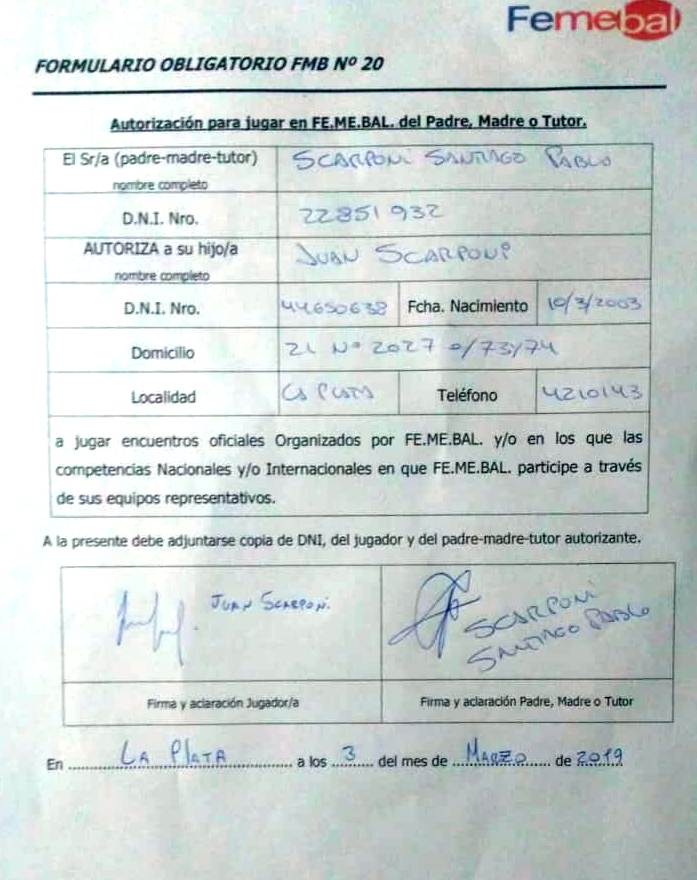 Femebal
FORMULARIO OBLIGATORIO FMB Nº 20
Autorización para jugar en FE.ME.BAL. del Padre, Madre o Tutor.
El Sr/a (padre-madre-tutor) SCARPONI SANTIAGO PABLO
nombre completo
D.N.I. Nro. 22851932
AUTORIZA a su hijo/a JUAN SCARPONI
nombre completo
D.N.I. Nro. 44650638 Fcha. Nacimiento 10/3/2003
Domicilio 21 Nº 2027 e/73y74
Localidad La Plata Teléfono 4210143
a jugar encuentros oficiales Organizados por FE.ME.BAL. y/o en los que las
competencias Nacionales y/o Internacionales en que FE.ME.BAL. participe a través
de sus equipos representativos.
A la presente debe adjuntarse copia de DNI, del jugador y del padre-madre-tutor autorizante.
JUAN SCARPONI.
SCARPONI
SANTIAGO PABLO
Firma y aclaración Jugador/a Firma y aclaración Padre, Madre o Tutor
En LA PLATA a los 3 del mes de MARZO de 2019